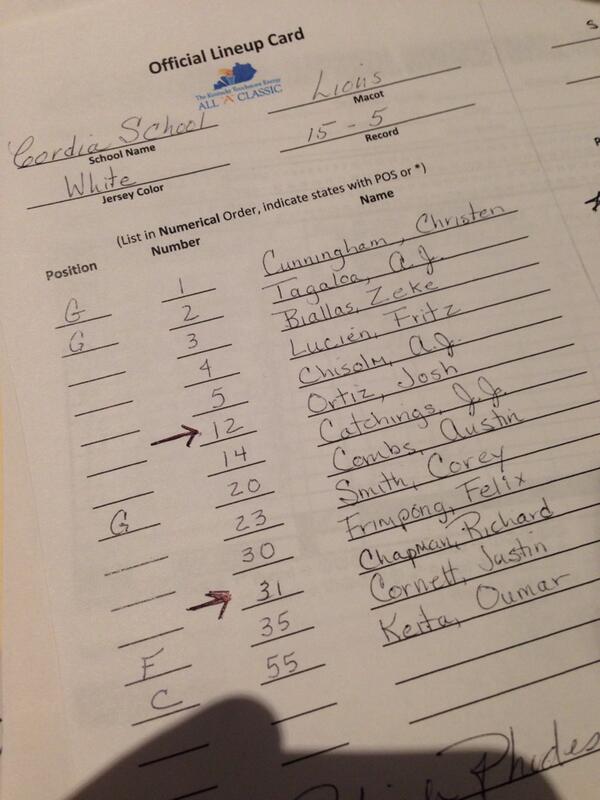 Official Lineup Card
The Kentucky Touchstone Energy
ALL "A" CLASSIC
Cordia School Lions
School Name Macot
White 15 - 5
Jersey Color Record
(List in Numerical Order, indicate states with POS or *)
Position Number Name
G 1 Cunningham, Christen
G 2 Tagaloa, A.J.
3 Biallas, Zeke
4 Lucien, Fritz
5 Chisolm, A.J.
12 Ortiz, Josh
14 Catchings, J.J.
G 20 Combs, Austin
23 Smith, Corey
30 Frimpong, Felix
31 Chapman, Richard
F 35 Cornett, Justin
C 55 Keita, Oumar